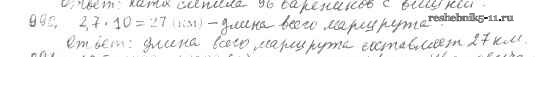 Ответ: Катя слепила 96 вареников с вишней.
reshebnik5-11.ru
992. 2,7 · 10 = 27 (км) – длина всего маршрута.
Ответ: длина всего маршрута составляет 27 км.